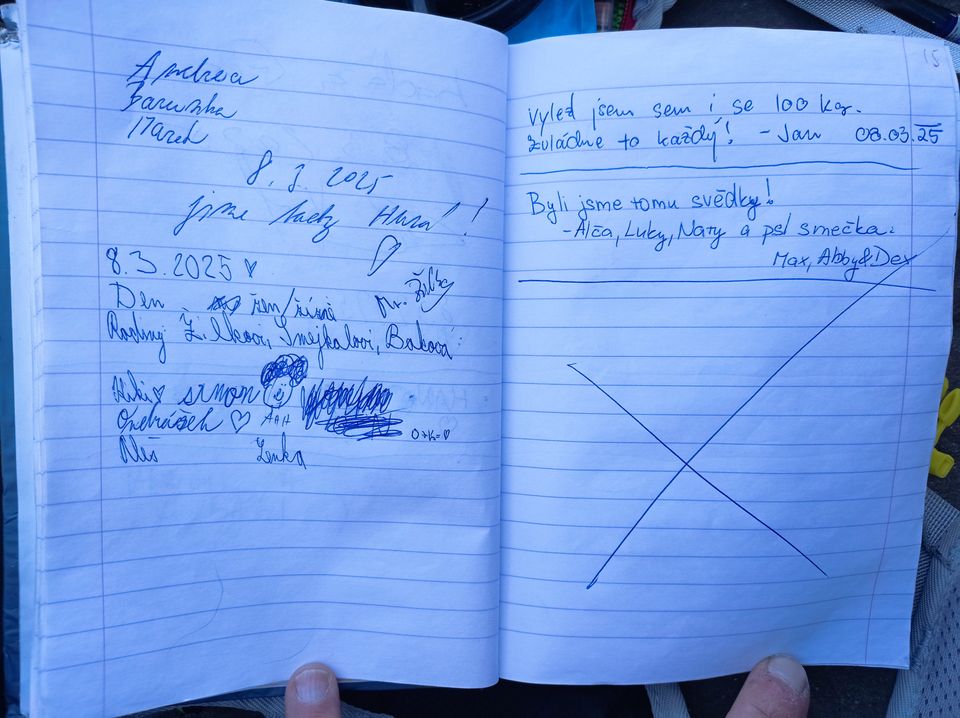 Andrea
Barunka
Marek
8. 3. 2025
jsme tady Hurá!!
8.3.2025 ♥
Den žen/
Mr. Žilka
Rodiny Žilkovi, Smejkalovi, Baková
Kiki ♥ srnon
Ondrášek ♡ AAH
O+K=♡
Lenka
15
Vylezl jsem sem i se 100 kg.
Zvládne to každý! - Jan 08.03.25
Byli jsme tomu svědky!
- Alča, Luky, Naty a psí smečka.
Max, Abby & Dex